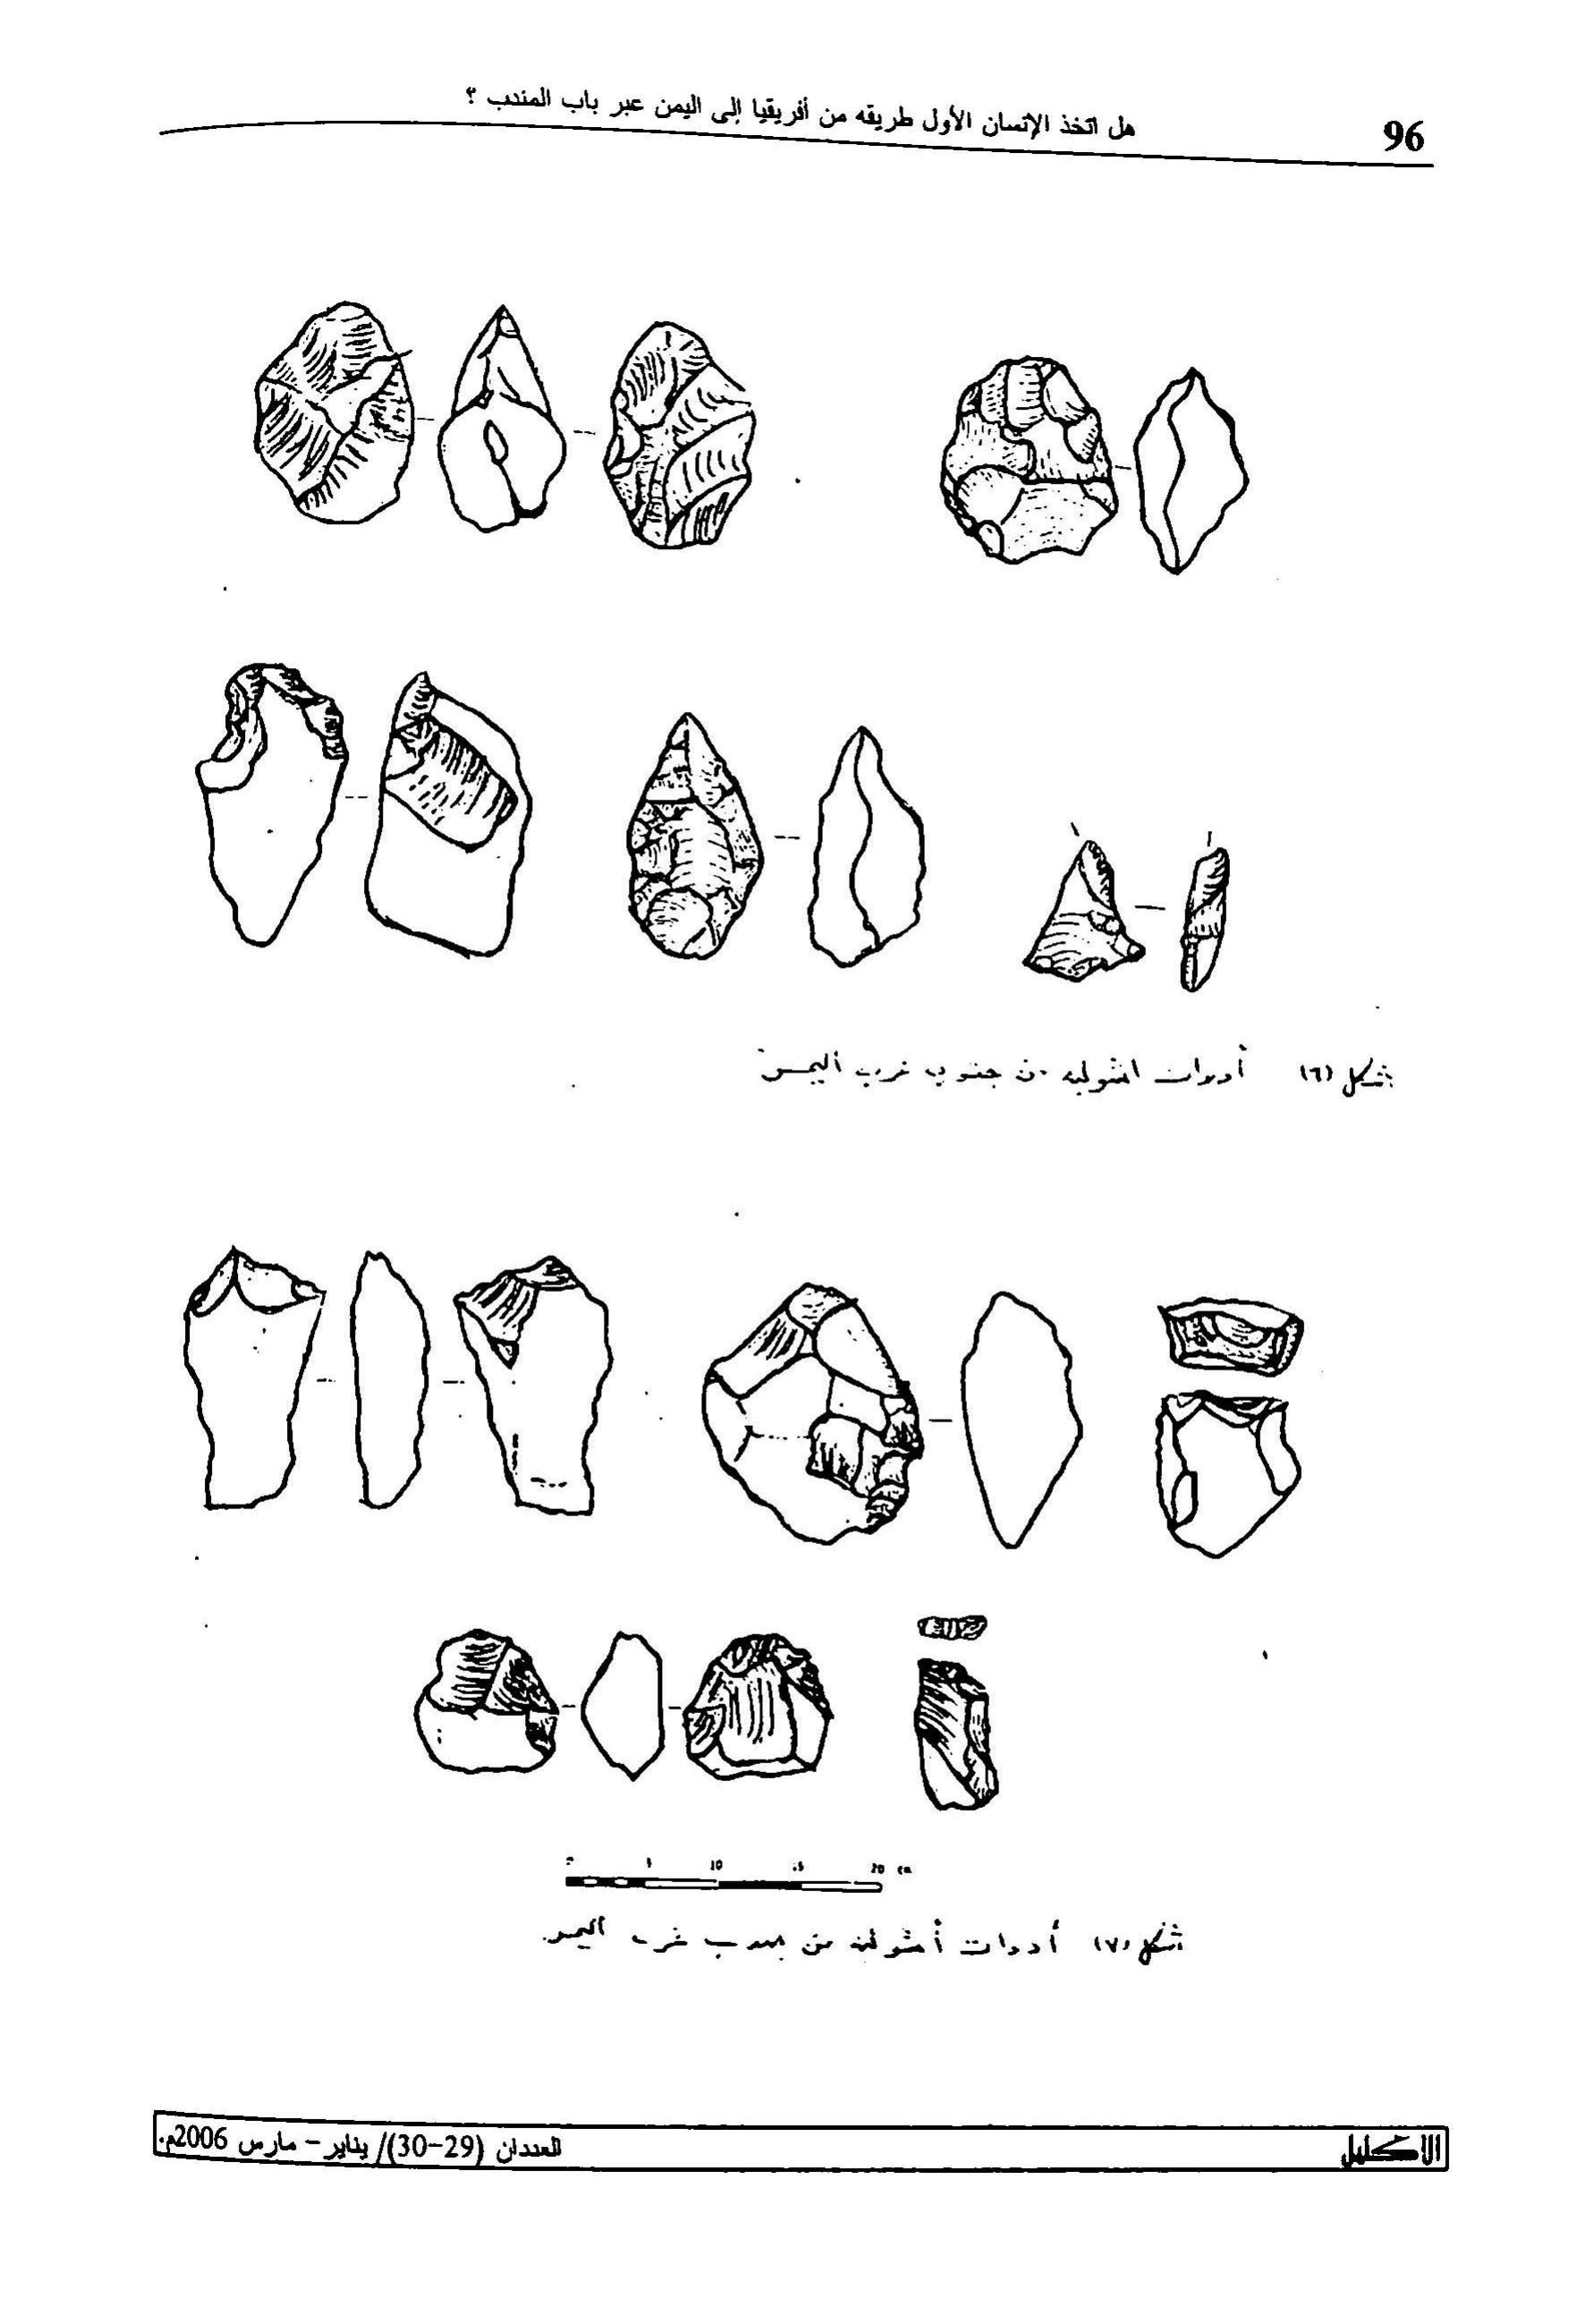 96
هل اتخذ الإنسان الأول طريقه من أفريقيا إلى اليمن عبر باب المندب ؟
شكل (٦) أدوات اشولية من جنوب غرب اليمن
10 20 cm
شكل (٧) أدوات أشولية من غرب اليمن
الاكليل
العددان (29-30)/ يناير - مارس 2006م.